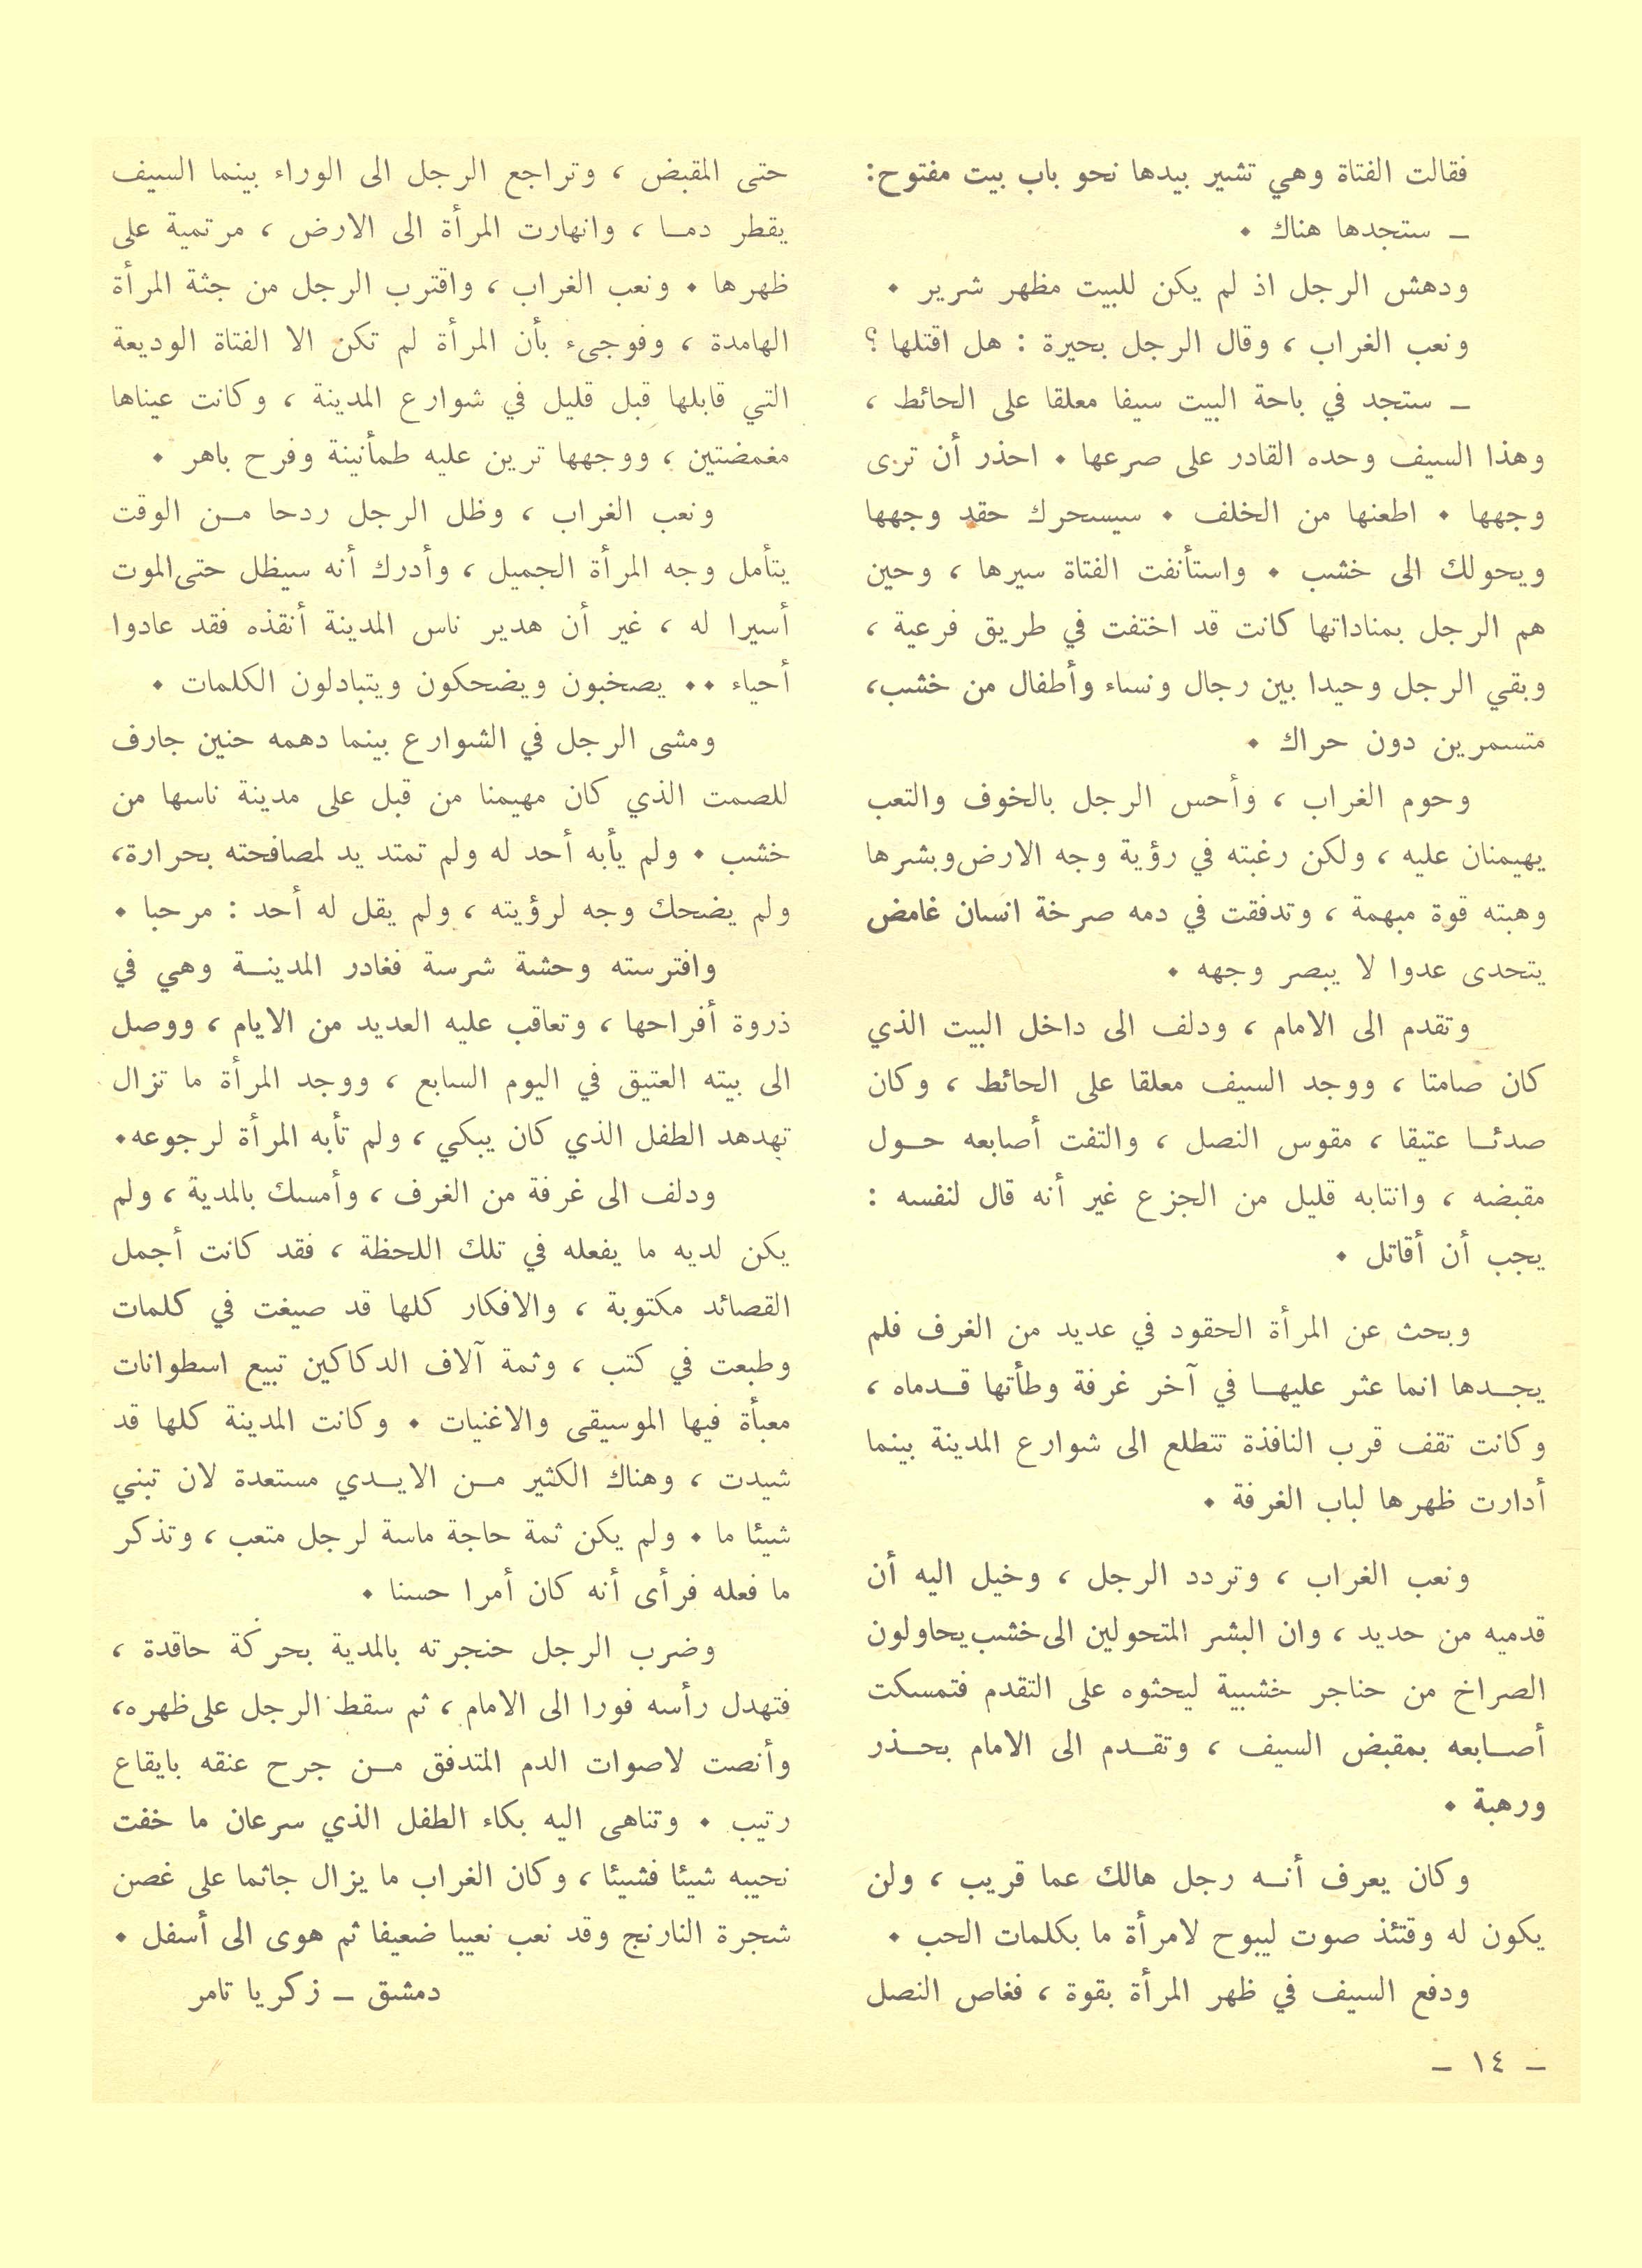 فقالت الفتاة وهي تشير بيدها نحو باب بيت مفتوح:
ــ ستجدها هناك ٠
ودهش الرجل اذ لم يكن للبيت مظهر شرير ٠
ونعب الغراب ، وقال الرجل بحيرة : هل اقتلها ؟
ــ ستجد في باحة البيت سيفا معلقا على الحائط ،
وهذا السيف وحده القادر على صرعها ٠ احذر أن ترى
وجهها ٠ اطعنها من الخلف ٠ سيسحرك حقد وجهها
ويحولك الى خشب ٠ واستأنفت الفتاة سيرها ، وحين
هم الرجل بمناداتها كانت قد اختفت في طريق فرعية ،
وبقي الرجل وحيدا بين رجال ونساء وأطفال من خشب،
متسمرين دون حراك ٠
وحوم الغراب ، وأحس الرجل بالخوف والتعب
يهيمنان عليه ، ولكن رغبته في رؤية وجه الارض وبشرها
وهبته قوة مبهمة ، وتدفقت في دمه صرخة انسان غامض
يتحدى عدوا لا يبصر وجهه ٠
وتقدم الى الامام ، ودلف الى داخل البيت الذي
كان صامتا ، ووجد السيف معلقا على الحائط ، وكان
صدئــا عتيقا ، مقوس النصل ، والتفت أصابعه حــول
مقبضه ، وانتابه قليل من الجزع غير أنه قال لنفسه :
يجب أن أقاتل ٠
وبحث عن المرأة الحقود في عديد من الغرف فلم
يجــدها انما عثر عليهــا في آخر غرفة وطأتها قــدماه ،
وكانت تقف قرب النافذة تتطلع الى شوارع المدينة بينما
أدارت ظهرها لباب الغرفة ٠
ونعب الغراب ، وتردد الرجل ، وخيل اليه أن
قدميه من حديد ، وان البشر المتحولين الى خشب يحاولون
الصراخ من حناجر خشبية ليحثوه على التقدم فتمسكت
أصــابعه بمقبض السيف ، وتقــدم الى الامام بحــذر
ورهبة ٠
وكان يعرف أنــه رجل هالك عما قريب ، ولن
يكون له وقتئذ صوت ليبوح لامرأة ما بكلمات الحب ٠
ودفع السيف في ظهر المرأة بقوة ، فغاص النصل
ــ ١٤ ــ
حتى المقبض ، وتراجع الرجل الى الوراء بينما السيف
يقطر دمــا ، وانهارت المرأة الى الارض ، مرتمية على
ظهرها ٠ ونعب الغراب ، واقترب الرجل من جثة المرأة
الهامدة ، وفوجىء بأن المرأة لم تكن الا الفتاة الوديعة
التي قابلها قبل قليل في شوارع المدينة ، وكانت عيناها
مغمضتين ، ووجهها ترين عليه طمأنينة وفرح باهر ٠
ونعب الغراب ، وظل الرجل ردحا مــن الوقت
يتأمل وجه المرأة الجميل ، وأدرك أنه سيظل حتى الموت
أسيرا له ، غير أن هدير ناس المدينة أنقذه فقد عادوا
أحياء ٠٠ يصخبون ويضحكون ويتبادلون الكلمات ٠
ومشى الرجل في الشوارع بينما دهمه حنين جارف
للصمت الذي كان مهيمنا من قبل على مدينة ناسها من
خشب ٠ ولم يأبه أحد له ولم تمتد يد لمصافحته بحرارة،
ولم يضحك وجه لرؤيته ، ولم يقل له أحد : مرحبا ٠
وافترسته وحشة شرسة فغادر المدينــة وهي في
ذروة أفراحها ، وتعاقب عليه العديد من الايام ، ووصل
الى بيته العتيق في اليوم السابع ، ووجد المرأة ما تزال
تهدهد الطفل الذي كان يبكي ، ولم تأبه المرأة لرجوعه٠
ودلف الى غرفة من الغرف ، وأمسك بالمدية ، ولم
يكن لديه ما يفعله في تلك اللحظة ، فقد كانت أجمل
القصائد مكتوبة ، والافكار كلها قد صيغت في كلمات
وطبعت في كتب ، وثمة آلاف الدكاكين تبيع اسطوانات
معبأة فيها الموسيقى والاغنيات ٠ وكانت المدينة كلها قد
شيدت ، وهناك الكثير مــن الايــدي مستعدة لان تبني
شيئا ما ٠ ولم يكن ثمة حاجة ماسة لرجل متعب ، وتذكر
ما فعله فرأى أنه كان أمرا حسنا ٠
وضرب الرجل حنجرته بالمدية بحركة حاقدة ،
فتهدل رأسه فورا الى الامام ، ثم سقط الرجل على ظهره،
وأنصت لاصوات الدم المتدفق مــن جرح عنقه بايقاع
رتيب ٠ وتناهى اليه بكاء الطفل الذي سرعان ما خفت
نحيبه شيئا فشيئا ، وكان الغراب ما يزال جاثما على غصن
شجرة النارنج وقد نعب نعيبا ضعيفا ثم هوى الى أسفل ٠
دمشق ــ زكريا تامر